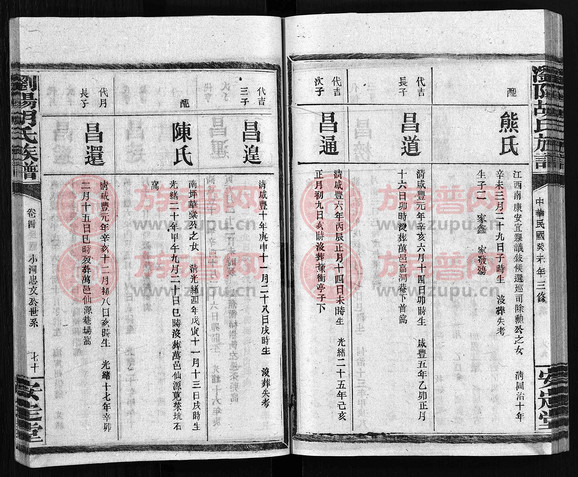 瀏陽胡氏族譜
中華民國癸未年三修
安定堂
配
熊氏
江西南康安宜縣議敘候選巡司除賴公之女 清同治十年
辛未三月二十九日子時生 沒葬失考
生子二 家鑫 家
代吉
長子
昌道
清咸豐元年辛亥六月十四日卯時生 咸豐五年乙卯正月
十六日卯時沒葬萬邑高河巷下首嵩
代吉
次子
昌通
清咸豐六年丙辰正月十四日未時生 光緒二十五年己亥
正月初九日亥時沒葬
代吉
三子
昌遑
清咸豐十年庚申十一月二十八日戌時生 沒葬失考
配
陳氏
南坪 之女 前光緒四年戊寅十一月十三日戌時生
光緒二十年甲午九月二十日巳時沒葬萬邑仙源莧菜坑石
窩
代月
長子
昌還
清咸豐元年辛亥十二月初八日亥時生 光緒十七年辛卯
二月十五日巳時沒葬萬邑仙源
瀏陽胡氏族譜
卷四
小河忠文公世系
七十
安定堂
族譜网
www.zupu.cn